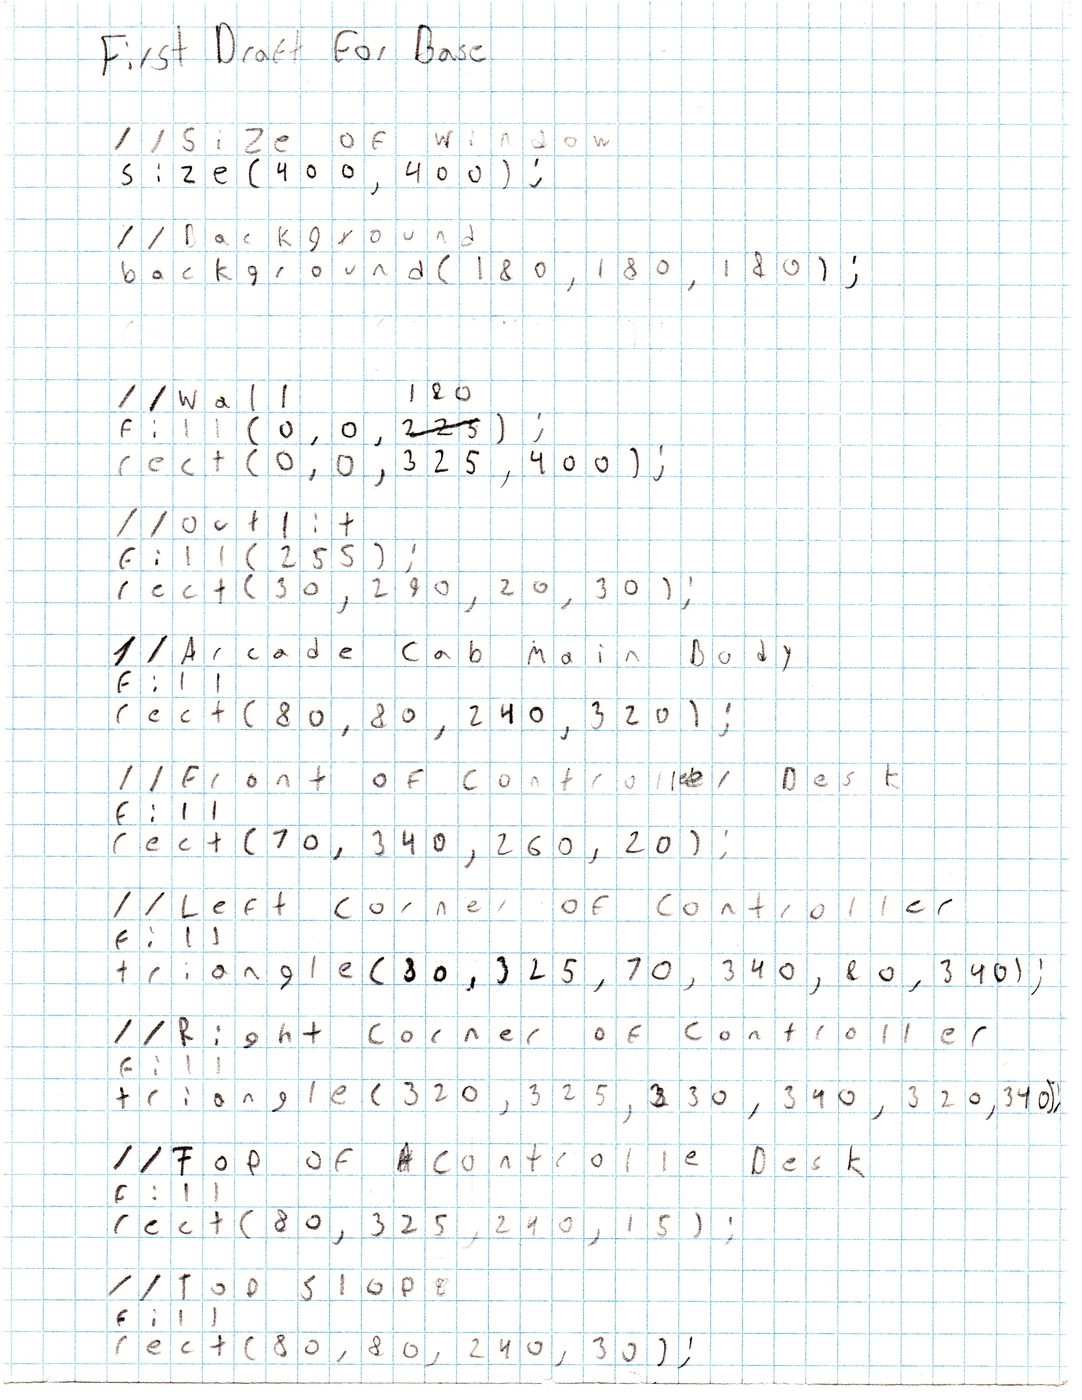 First Draft For Base
//Size of Window
size(400, 400);
//Background
background(180, 180, 180);
//Wall 180
fill(0, 0, 225);
rect(0, 0, 325, 400);
//Outlit
fill(255);
rect(30, 290, 20, 30);
//Arcade Cab Main Body
fill
rect(80, 80, 240, 320);
//Front of Controller Desk
fill
rect(70, 340, 260, 20);
//Left Corner of Controller
fill
triangle(80, 325, 70, 340, 80, 340);
//Right Corner of Controller
fill
triangle(320, 325, 330, 340, 320, 340);
//Top of Controlle Desk
fill
rect(80, 325, 240, 15);
//Top Slope
fill
rect(80, 80, 240, 30);